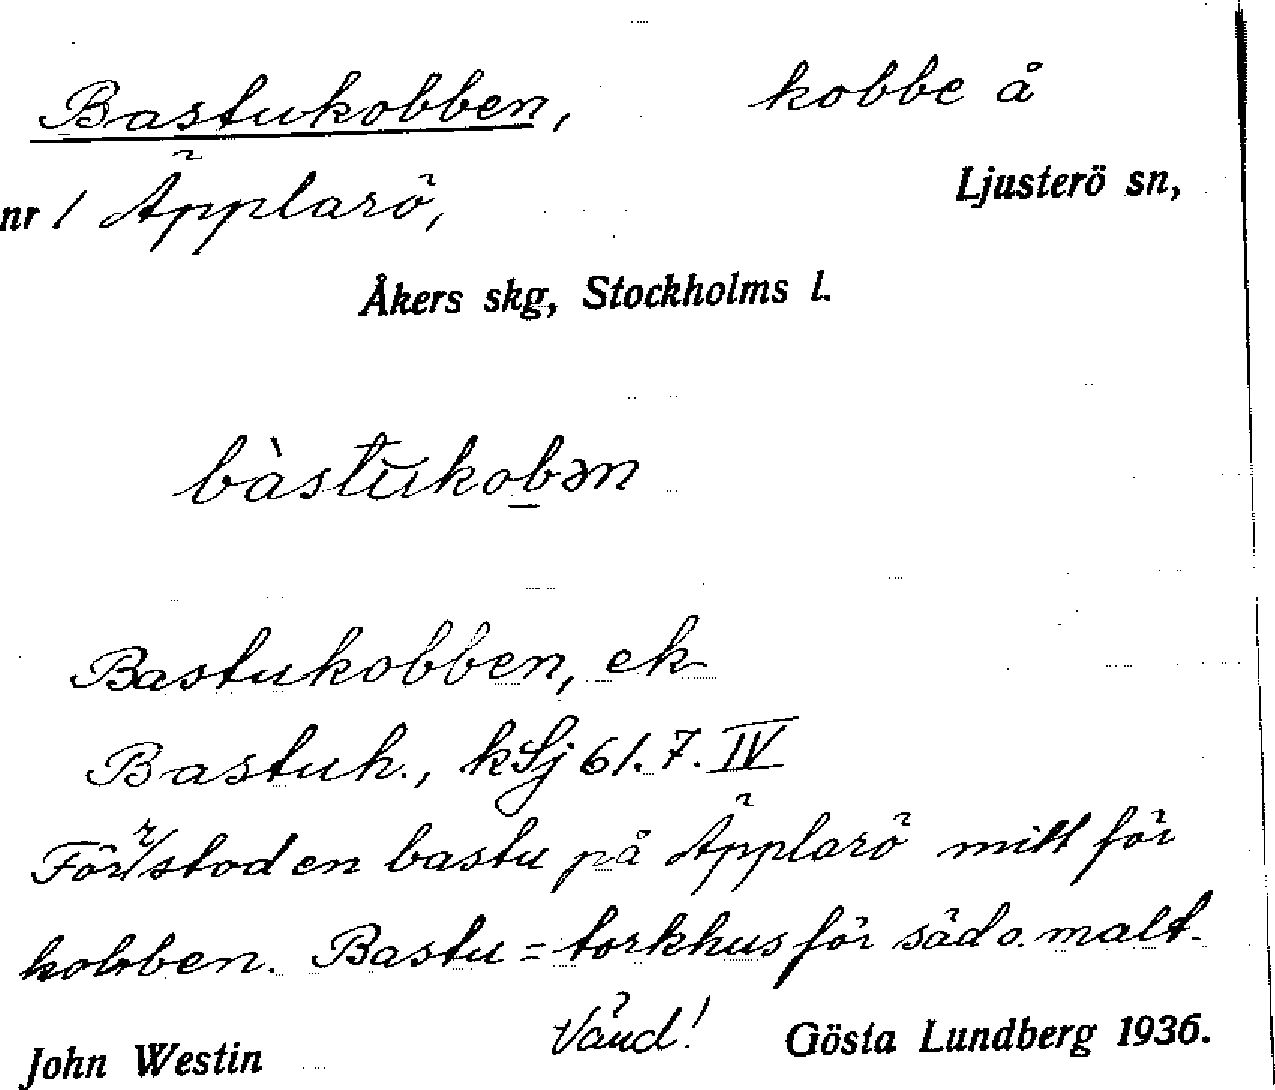 Bastukobben, kobbe å
nr 1 Äpplarö, Ljusterö sn,
Åkers skg, Stockholms l.
bàstŭkob̲ən
Bastukobben, ek
Bastuh., kSj 61.7.IV
Förr stod en bastu på Äpplarö mitt för
kobben. Bastu = torkhus för säd o. malt.
Vänd!
John Westin Gösta Lundberg 1936.